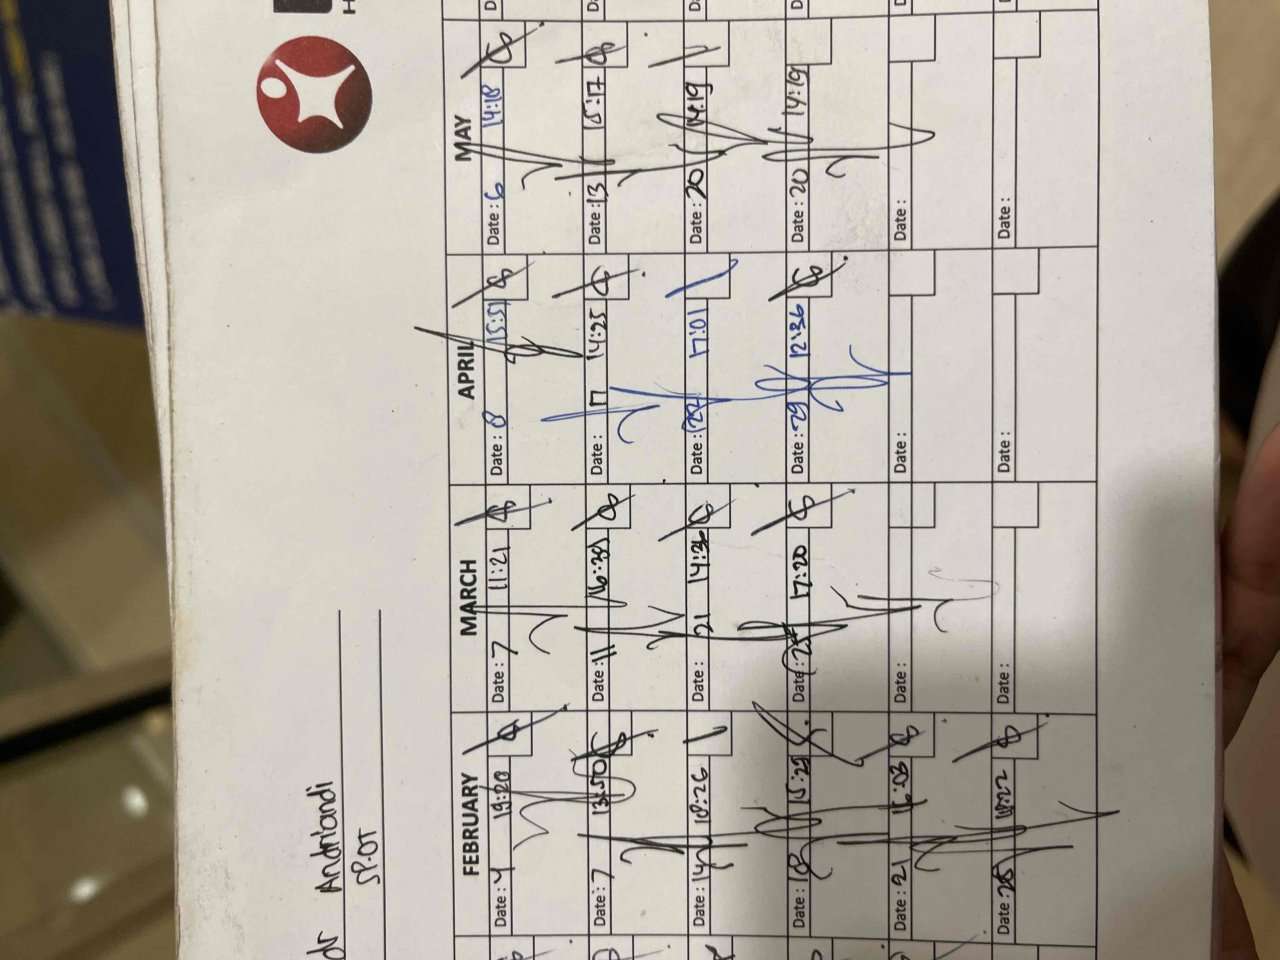 dr Andriandi
SP.OT
FEBRUARY MARCH APRIL MAY
Date: 4 19:20 Date: 7 11:21 Date: 8 15:51 Date: 6 14:18
Date: 7 13:50 Date: 11 16:39 Date: 17 14:25 Date: 13 15:17
Date: 14 18:26 Date: 21 14:36 Date: 22 17:01 Date: 20 14:19
Date: 18 15:29 Date: 25 17:20 Date: 29 12:36 Date: 20 14:19
Date: 21 16:03 Date: Date: Date:
Date: 25 18:22 Date: Date: Date: